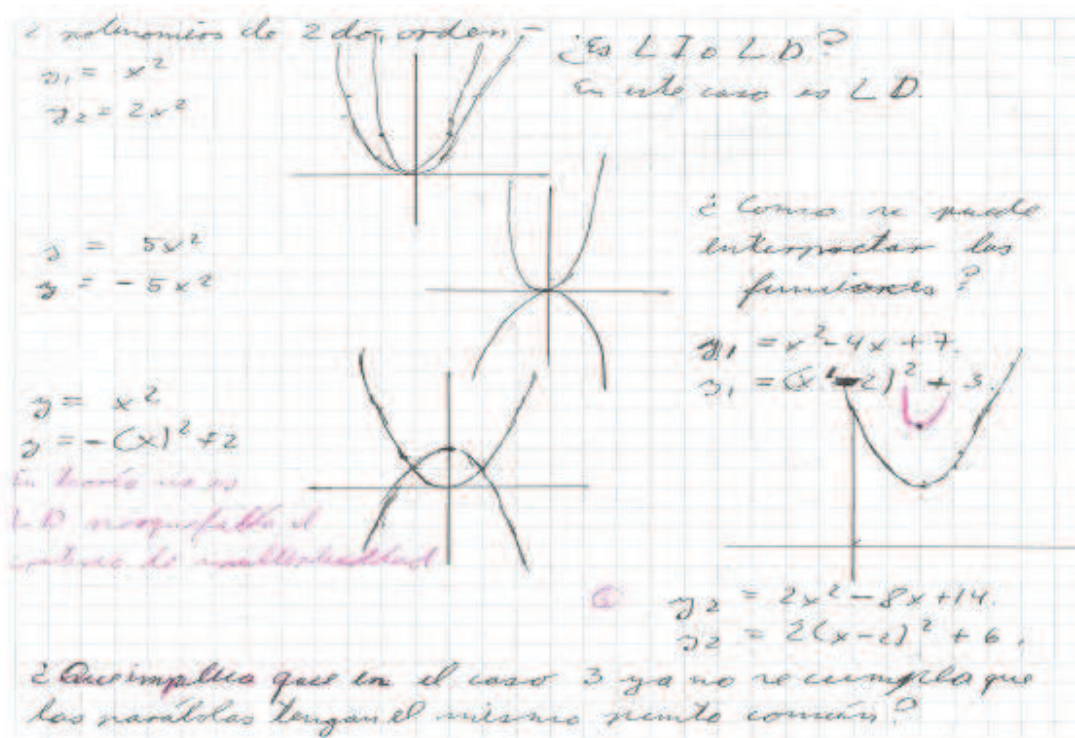 2 polinomios de 2do. orden –
y₁ = x²
y₂ = 2x²
¿Es L I o L D?
En este caso es L D.
y = 5x²
y = - 5x²
¿Como se puede
interpretar las
funciones?
y₁ = x² - 4x + 7.
y₁ = (x - 2)² + 3.
y = x²
y = -(x)² + 2
En teoría no es
L D porque falla el
criterio de multiplicidad
6
y₂ = 2x² - 8x + 14.
y₂ = 2(x-2)² + 6.
¿Que implica que en el caso 3 ya no se cumpla que
las parábolas tengan el mismo punto común?